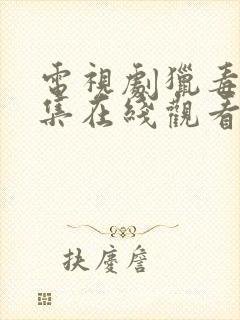 電視劇獵毒
集在綫觀看
扶慶詹